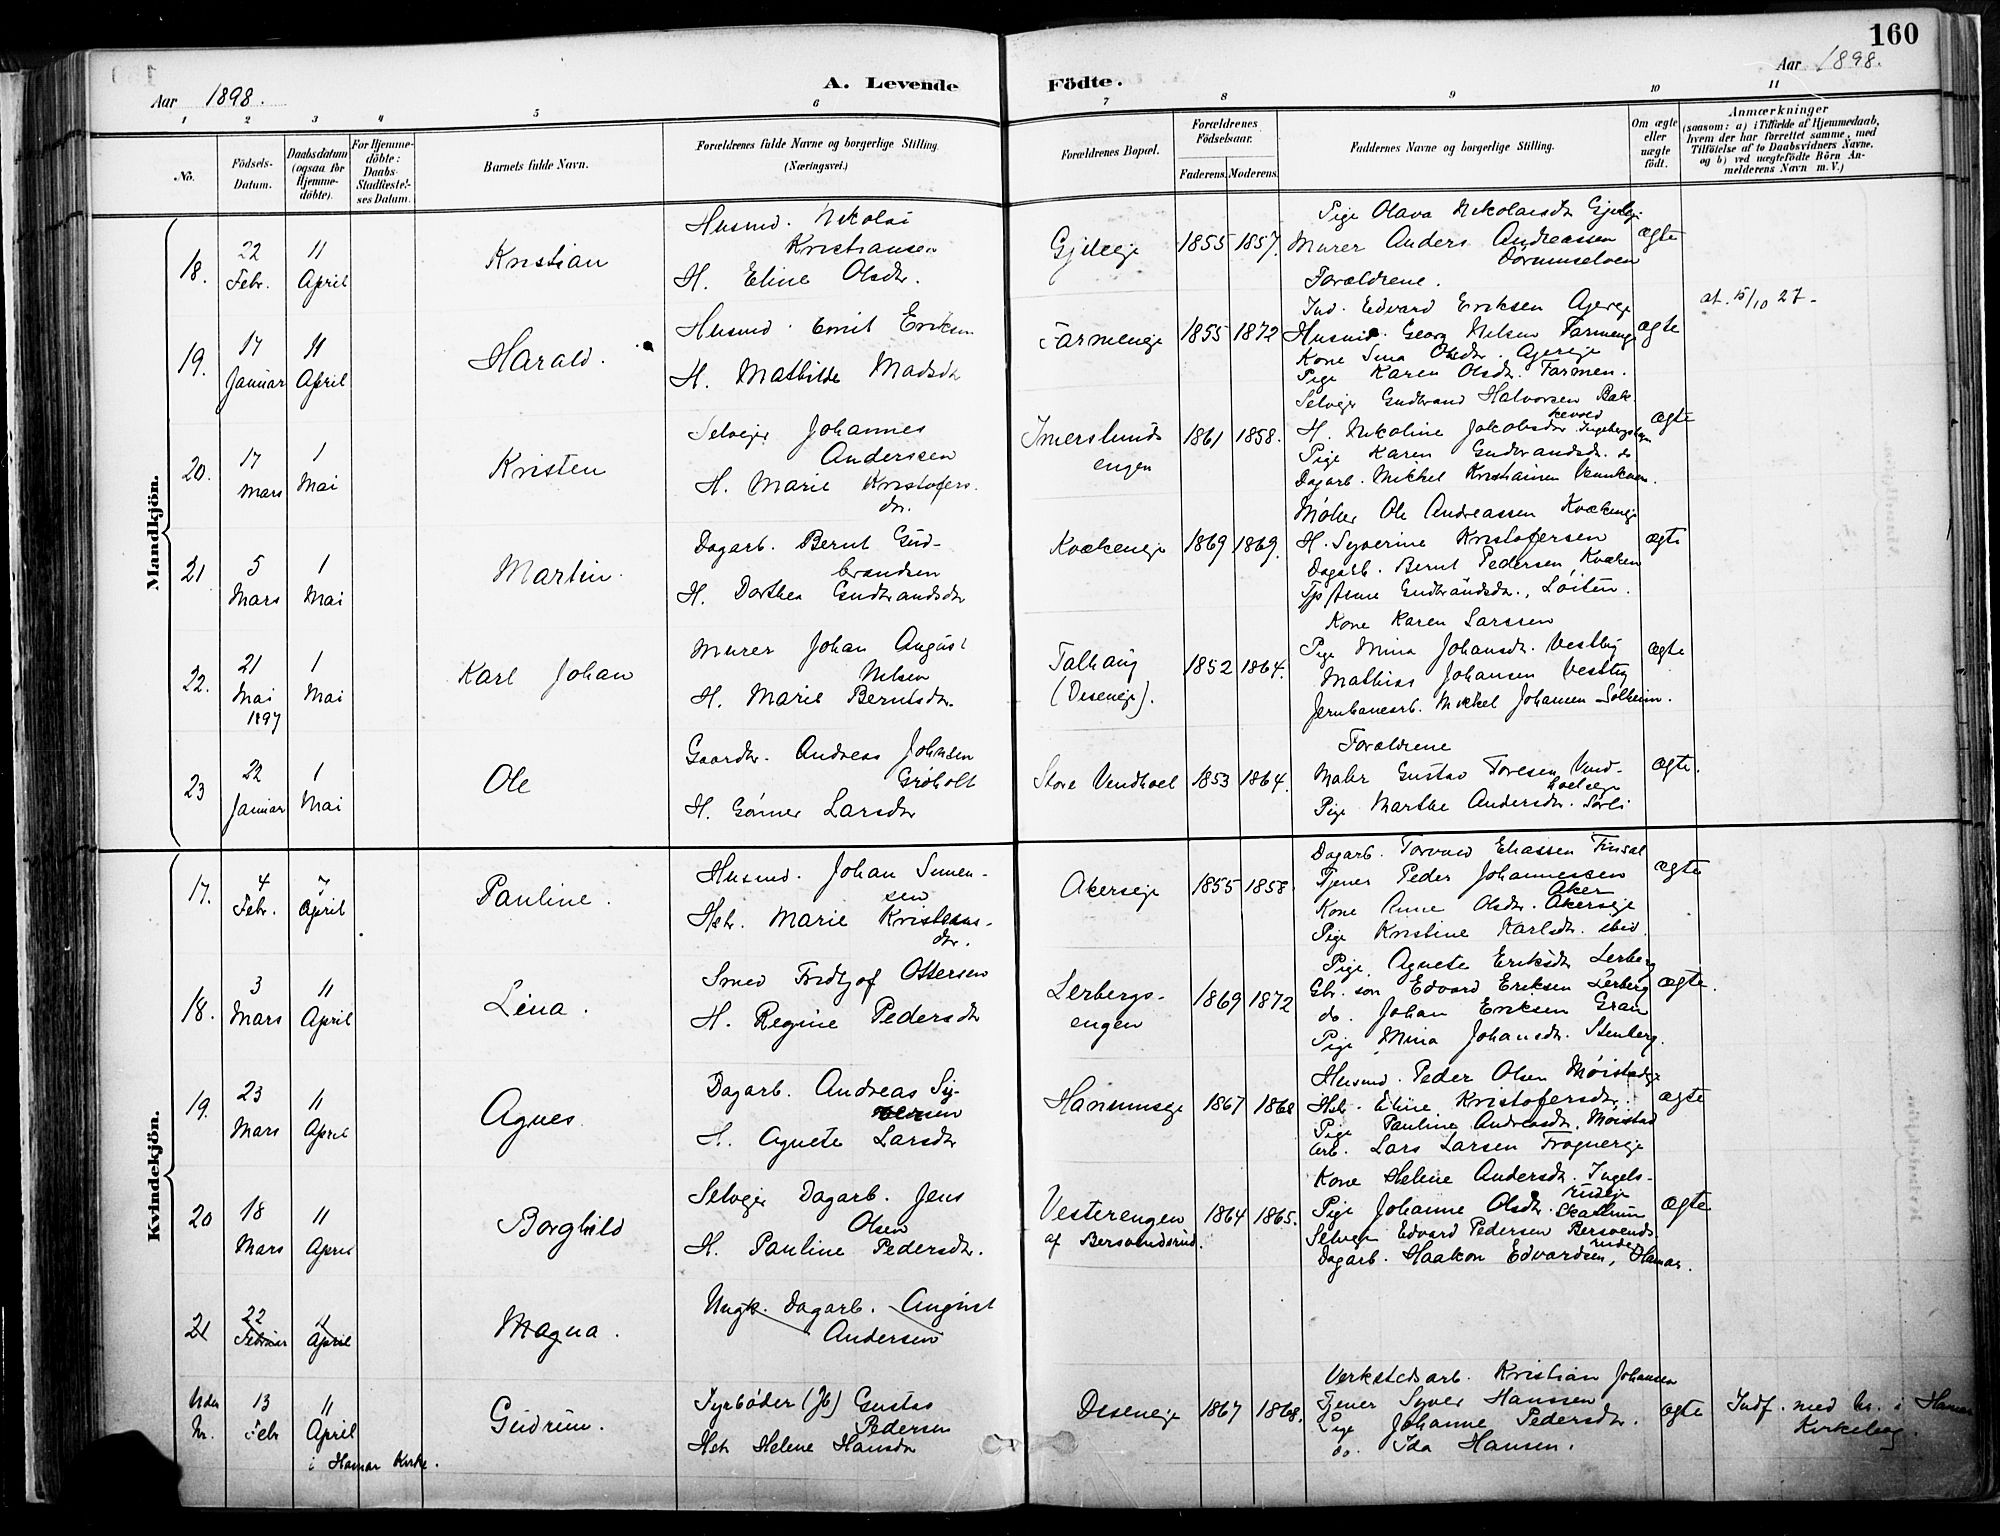 160
Aar 1898.
A. Levende Födte.
Aar 1898.
1 2 3 4 5 6 7 8 9 10 11
No.
Födsels-Datum.
Daabsdatum (ogsaa for Hjemmedöbte).
For Hjemmedöbte: Daabs-Stadfæstelses Datum.
Barnets fulde Navn.
Forældrenes fulde Navne og borgerlige Stilling. (Næringsvei.)
Forældrenes Bopæl.
Forældrenes Födselsaar.
Faderens. Moderens.
Faddernes Navne og borgerlige Stilling.
Om ægte eller uægte født.
Anmærkninger
(saasom: a) i Tilfælde af Hjemmedaab, hvem der har forrettet samme, med Tilföielse af to Daabsvidners Navne, og b) ved uægtefödte Börn Anmelderens Navn m. V.)
Mandkjön.
18. 22 Febr. 11 April Kristian
Husmd. Nikolai Kristiansen
H. Eline Olsdtr.
Gjileeje 1855 1857.
Pige Olava Nikolaisdtr
Murer Anders Andreassen
Forældrene.
ægte
19. 17 Januar 11 April Harald.
Husmd. Emil Eriksen
H. Mathilde Madsdtr
Farmeneje 1855 1872
Ind. Edvard Eriksen Ajereje
Husmd. Georg Nilsen Farmeneje
Kone Sina Olsdtr. Ajereje
Pige Karen Olsdtr. Farmen.
ægte
at. 15/10 27-
20. 17 Mars 1 Mai Kristen
Selvejer Johannes Anderssen
H. Marie Kristofersdtr.
Imerslunds engen 1861 1858.
Selvejer Gudbrand Halvorsen Bakkevold
H. Nikoline Jakobsdtr
Pige Karen Gudbrandsdtr. do
Dagarb. Mikkel Kristiansen
ægte
21. 5 Mars 1 Mai Martin.
Dagarb. Bernt Gudbrandsen
H. Dorthea Gudbrandsdtr
Kvækeneje 1869 1869.
Møller Ole Andreassen Kvækeneje
H. Syverine Kristofersen
Dagarb. Bernt Pedersen Kvæken
Anne Gudbrandsdtr., Löiten.
ægte
22. 21 Mai 1897 1 Mai Karl Johan
Murer Johan August Nilsen
H. Marie Berntsdtr.
Talhaug (Deseneje). 1852 1864.
Kone Karen Larssen
Pige Mina Johansdtr. Vestby
Mathias Johansen Vestby
Jernbanearb. Mikkel Johansen Solheim.
ægte
23 22 Januar 1 Mai Ole
Gaardbr. Andreas Johnsen Gröholt
H. Göriner Larsdtr
Store Vendkvel 1853 1864.
Forældrene
Maler Gustav Toresen Vendkvelseje
Pige Marthe Andersdtr. Sørli
ægte.
Kvindekjön.
17. 4 Febr. 7 April Pauline.
Husmd. Johan Simensen
Hstr. Marie Kristiansdtr.
Akerseje 1855 1858.
Dagarb. Torvald Eliassen Finsal
Tjener Peder Johannessen Aker
Kone Anne Olsdtr. Akerseje
Pige Kristine Karlsdtr. ibid.
ægte
18. 3 Mars 11 April Lina.
Smed Fridtjof Ottersen
H. Regine Pedersdtr
Lerbergsengen 1869 1872
Pige Agnete Eriksdtr Lerberg
Gbr. søn Edvard Eriksen Lerberg
do. Johan Eriksen Gran
Pige Mina Johansdtr. Stenberg.
ægte.
19. 23 Mars 11 April Agnes
Dagarb. Andreas Syversen
H. Agnete Larsdtr
Hanumseje 1867 1868
Husmd. Peder Olsen Møistadeje
Hstr. Eline Kristofersdtr.
Pige Pauline Andreasdtr. Møistad
Arb. Lars Larsen Frognereje
ægte
20 18 Mars 11 April Borghild
Selvejer Dagarb. Jens Olsen
H. Pauline Pedersdtr.
Vesterengen af Bersvendsrud. 1864 1865.
Kone Helene Andersdtr. Ingelsrudeje
Pige Johanne Olsdtr.
Selvejer Edvard Pedersen Bersvendsrudeje
Dagarb. Haakon Edvardsen, Hamar.
ægte
21 22 Februar 11 April Magna.
Ungk. Dagarb. August Andersen
Uden Nr. 13 Febr 11 April i Hamar Kirke. Gudrun.
Fyrbøder (Jb) Gustav Pedersen
Hstr Helene Hansdtr
Deseneje 1867 1868.
Verkstedsarb. Kristian Johansen
Tjener Syver Hanssen
Pige Johanne Pedersdtr.
do. Ida Hansen.
ægte
Indf. med Nr. i Hamar Kirkebog.